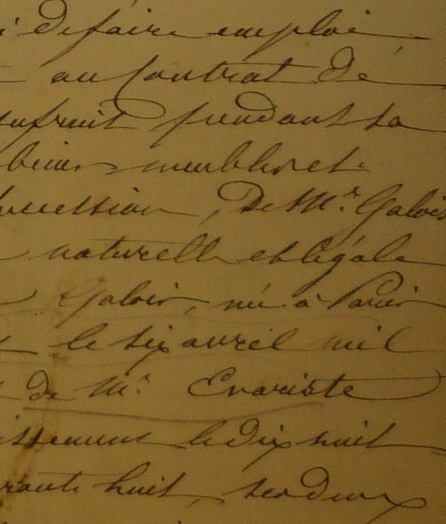 i de faire emploi
au Contrat de
usufruit pendant sa
biens meubles et
succession, De Mr. Galois
naturelle et légale
Galois, né à Paris
le six avril mil
de Mr. Evariste
issement le dix huit
rante huit, ses deux